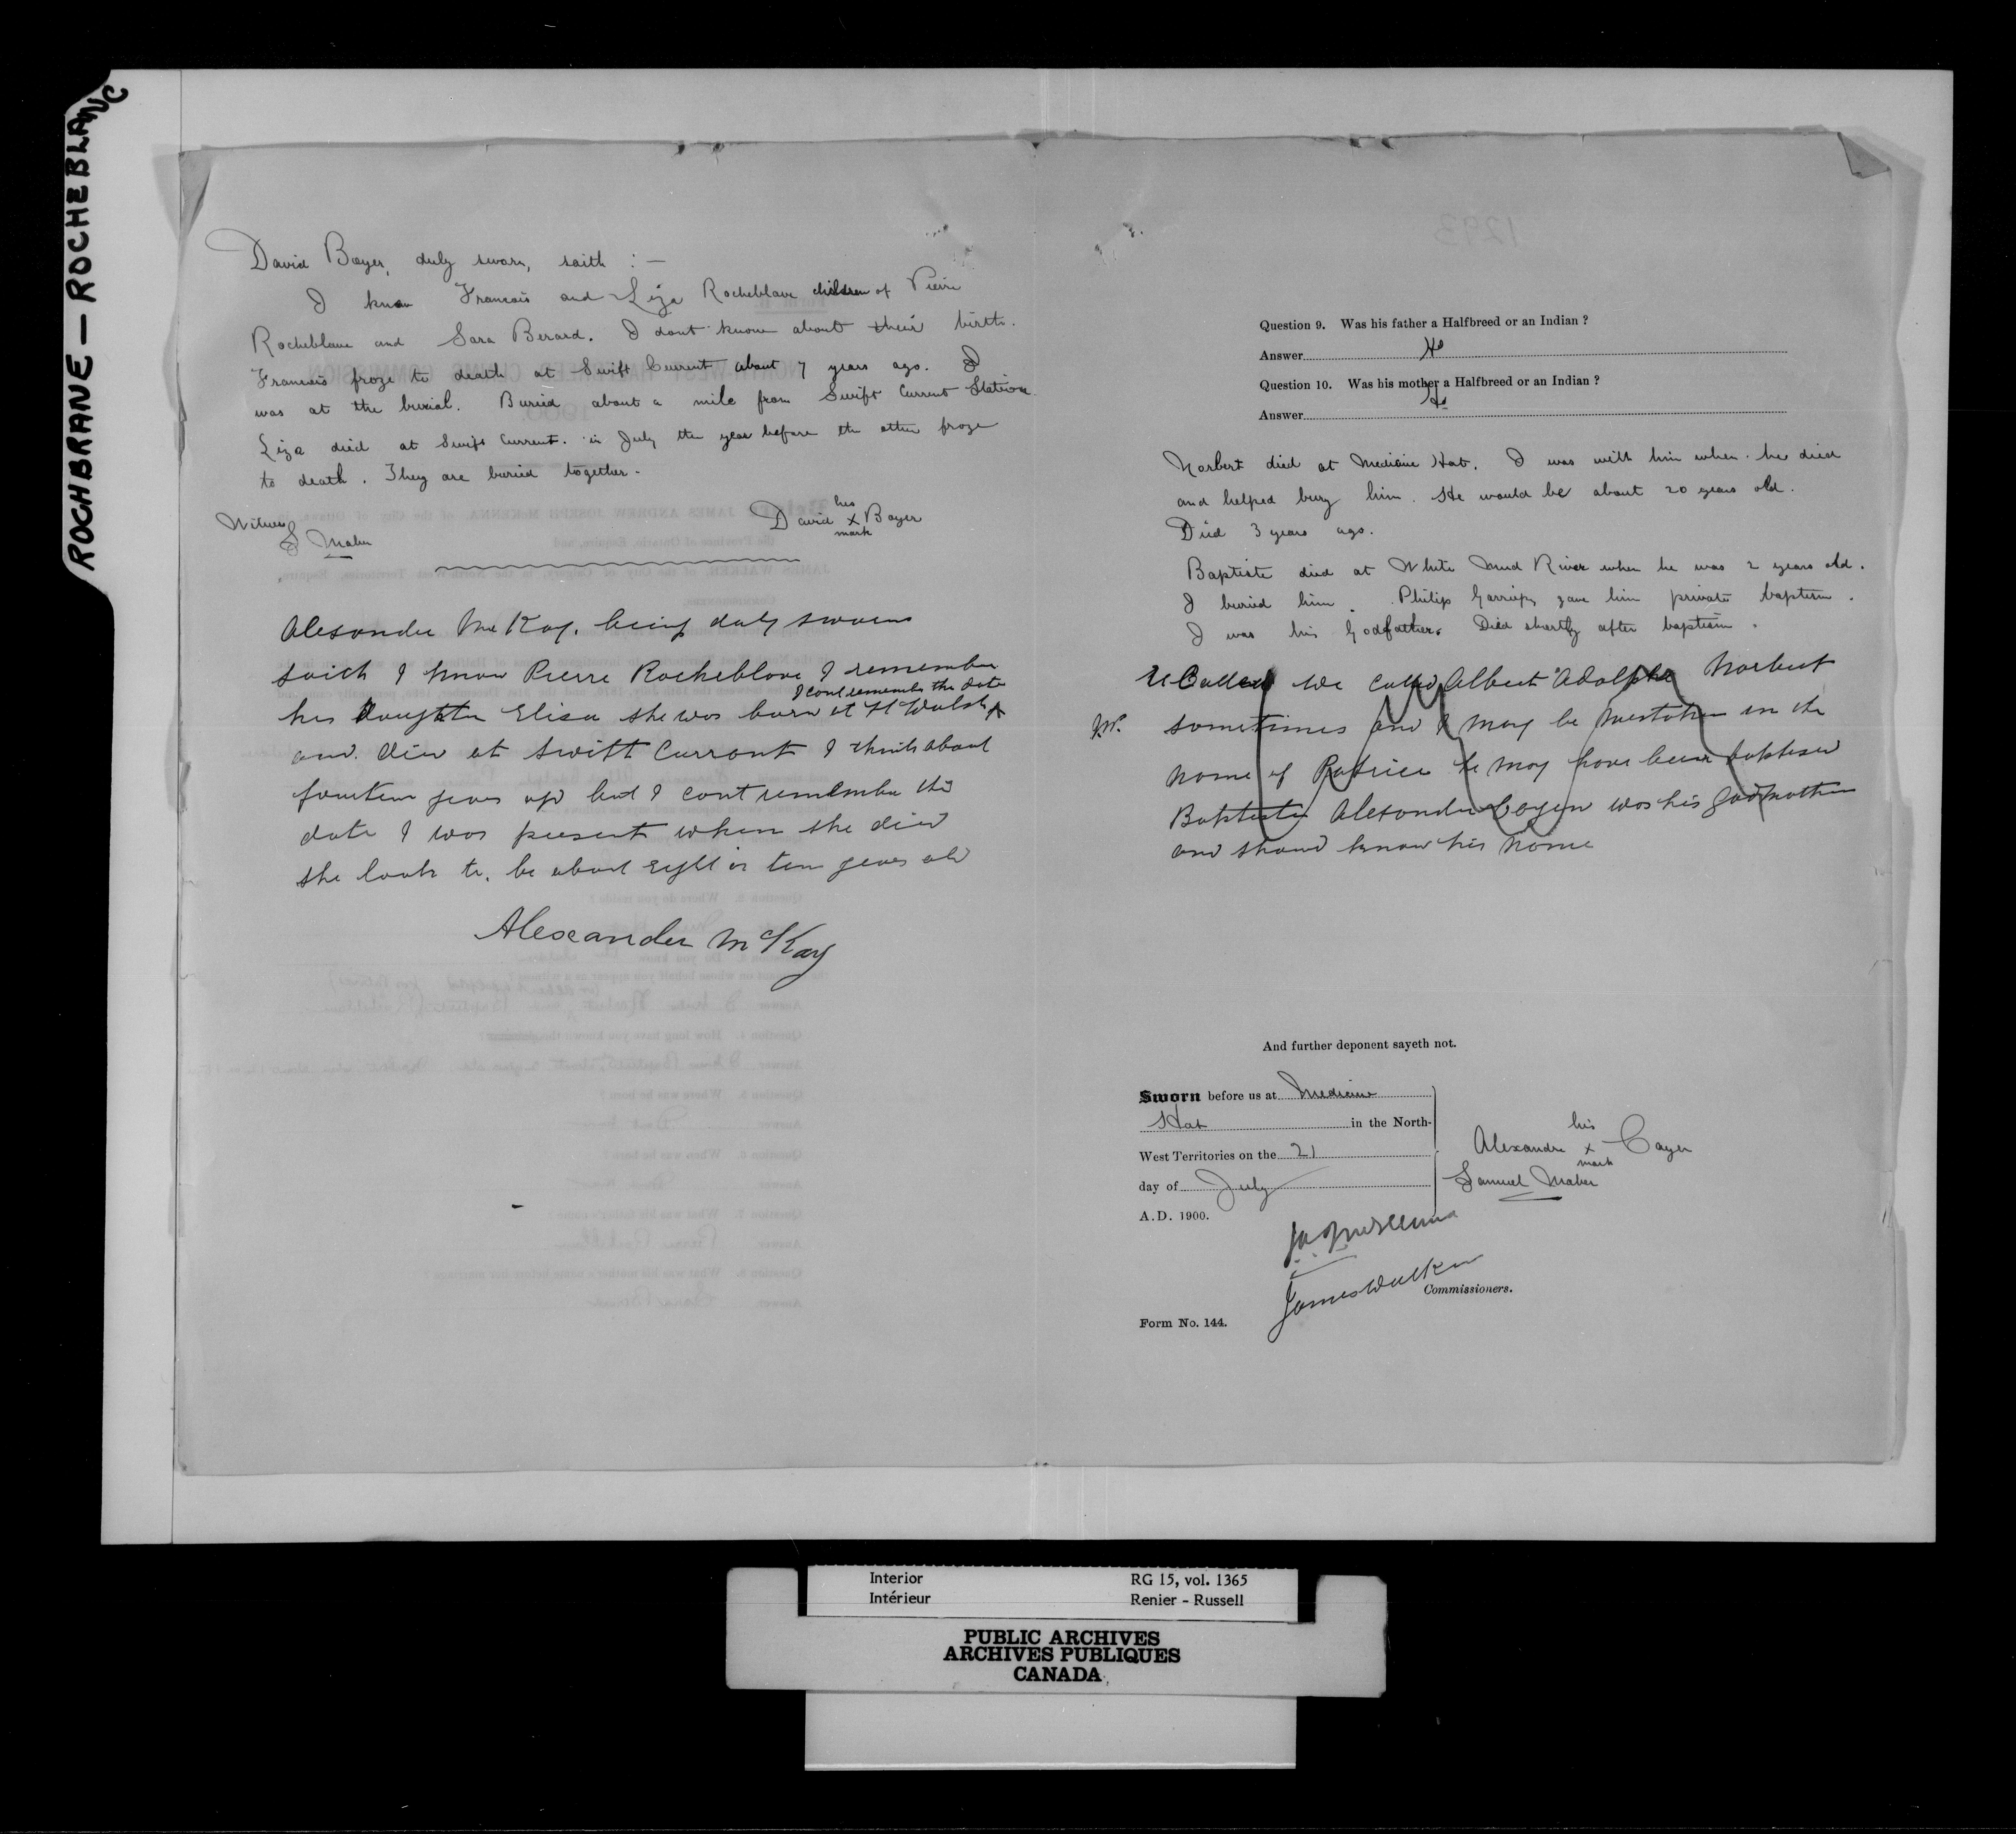 ROCHBRANE — ROCHEBLANC
David Boyer, duly sworn, saith : —
I know Francois and Liza Rocheblave children of Pierre
Rocheblave and Sara Berard. I dont know about their birth.
Francois froze to death at Swift Current about 7 years ago. I
was at the burial. Buried about a mile from Swift Current Station
Liza died at Swift Current. in July the year before the other froze
to death. They are buried together.
Witness
S Maber
his
David x Boyer
mark
Alexander McKay, being duly sworn
saith I know Pierre Rocheblave I remember
I cant remember the date
his daughter Elisa she was born at Ft Walsh
and died at Swift Current I think about
fourteen years ago but I cant remember the
date I was present when she died
she look to be about eight or ten years old
Alexander McKay
1293
Question 9. Was his father a Halfbreed or an Indian ?
Answer Hb
Question 10. Was his mother a Halfbreed or an Indian ?
Answer Hb
Norbert died at Medicine Hat. I was with him when he died
and helped bury him. He would be about 20 years old.
Died 3 years ago.
Baptiste died at White Mud River when he was 2 years old.
I buried him. Philip Garriepy gave him private baptism.
I was his Godfather. Died shortly after baptism.
ReCalled We called Albert Adolphe Norbert
sometimes and I may be mistaken in the
name of Patrice he may have been baptised
Baptiste Alexander Cayen was his godmother
and should know his name
And further deponent sayeth not.
Sworn before us at Medicine
Hat in the North-
West Territories on the 21
day of July
A.D. 1900.
his
Alexandre x Cayen
mark
Samuel Maber
J A J McKenna
James Walker
Commissioners.
Form No. 144.
Interior RG 15, vol. 1365
Intérieur Renier - Russell
PUBLIC ARCHIVES
ARCHIVES PUBLIQUES
CANADA